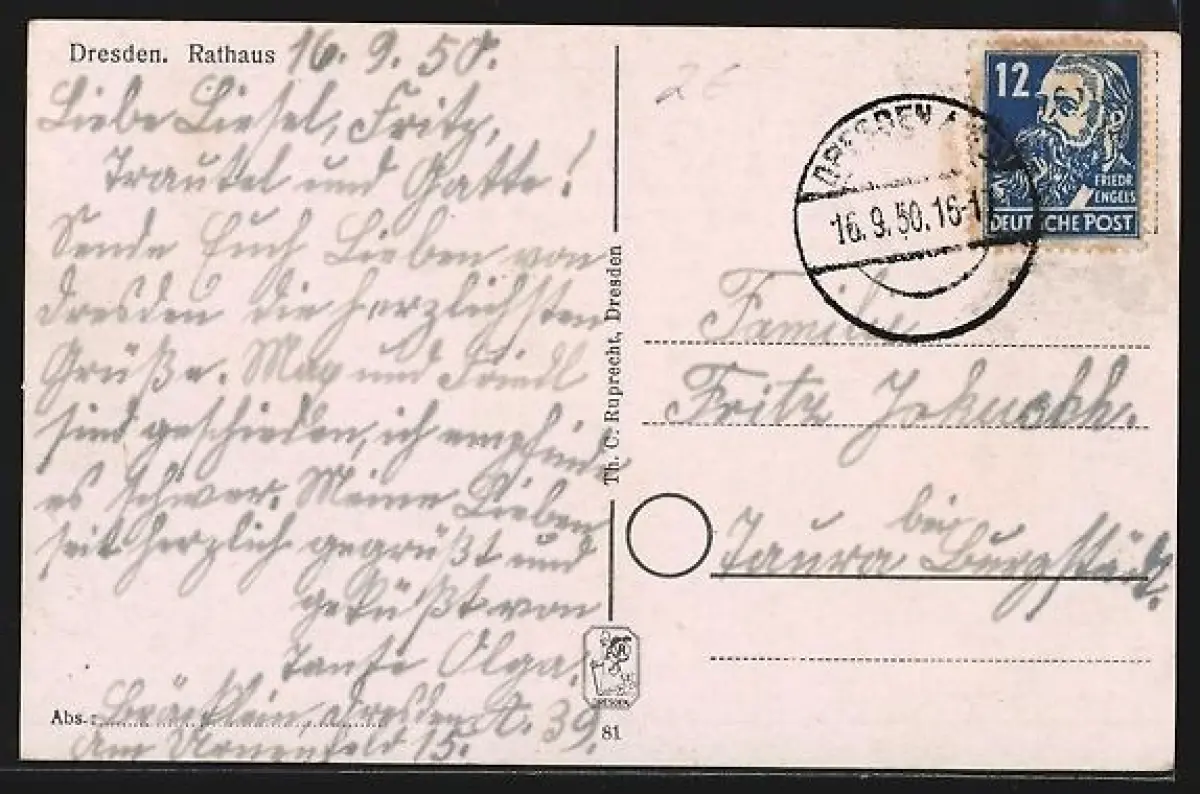 Dresden. Rathaus 16. 9. 50.
Liebe Liesel, Fritz,
Trautel und Gatte!
Sende Euch Lieben von
Dresden die herzlichsten
Grüße. Max und Friedl
sind geschieden, ich empfinde
es schwer. Meine Lieben
seit herzlich gegrüßt und
geküßt von
Tante Olga.
Abs.: Dresden A. 39.
Am Urnenfeld 15.
Th. C. Ruprecht, Dresden
DRESDEN
81
2 €
12
FRIEDR
ENGELS
DEUTSCHE POST
DRESDEN A
16.9.50.16-1
Familie
Fritz
bei
Taura Burgstädt.